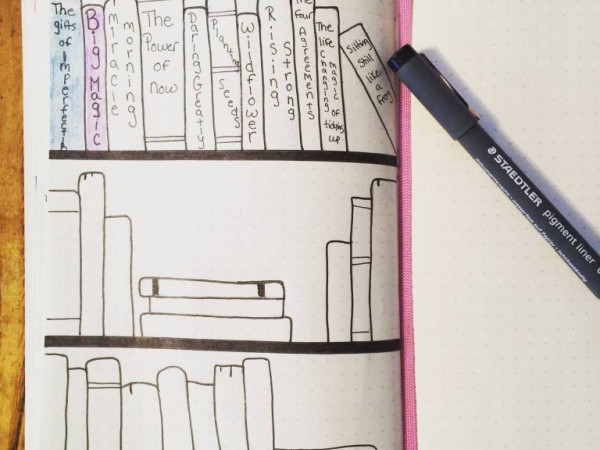 The gifts of Imperfecti
Big Magic
Miracle
morning
The
Power
of
Now
Daring Greatly
Planting
Seeds
Wildflower
Rising
Strong
The Four Agreements
The
life
changing
magic of
tiding
up
Sitting
Still
like
a
frog
STAEDTLER pigment liner